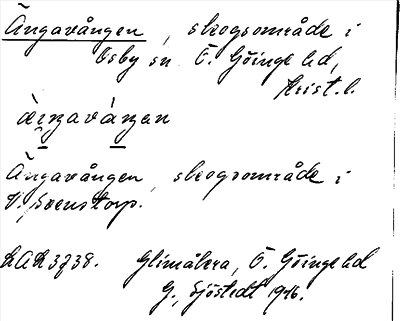 Ängavången, skogsområde i
Osby sn Ö. Göinge hd,
Krist. l.
äŋavåŋan
Ängavången, skogsområde i
V. Svenstorp.
LAL 3738. Glimåkra, Ö. Göinge hd
G. Sjöstedt 1946.